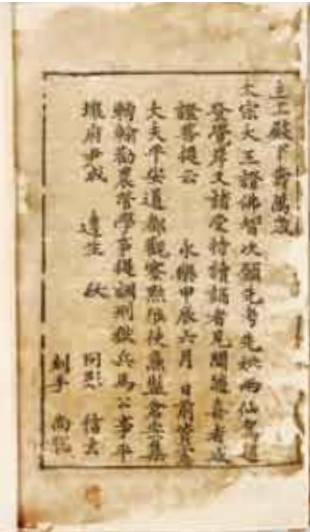 主上殿下壽萬歲
太宗大王證佛智次願先考先妣兩仙駕道
登覺岸又諸受持讀誦者見聞隨喜者咸
證菩提云 永樂甲辰六月 日前資憲
大夫平安道都觀察黜陟使兼監倉安集
轉輸勸農管學事提調刑獄兵馬公事平
壤府尹成 達生 跋
同影 信玄
刻手 尚